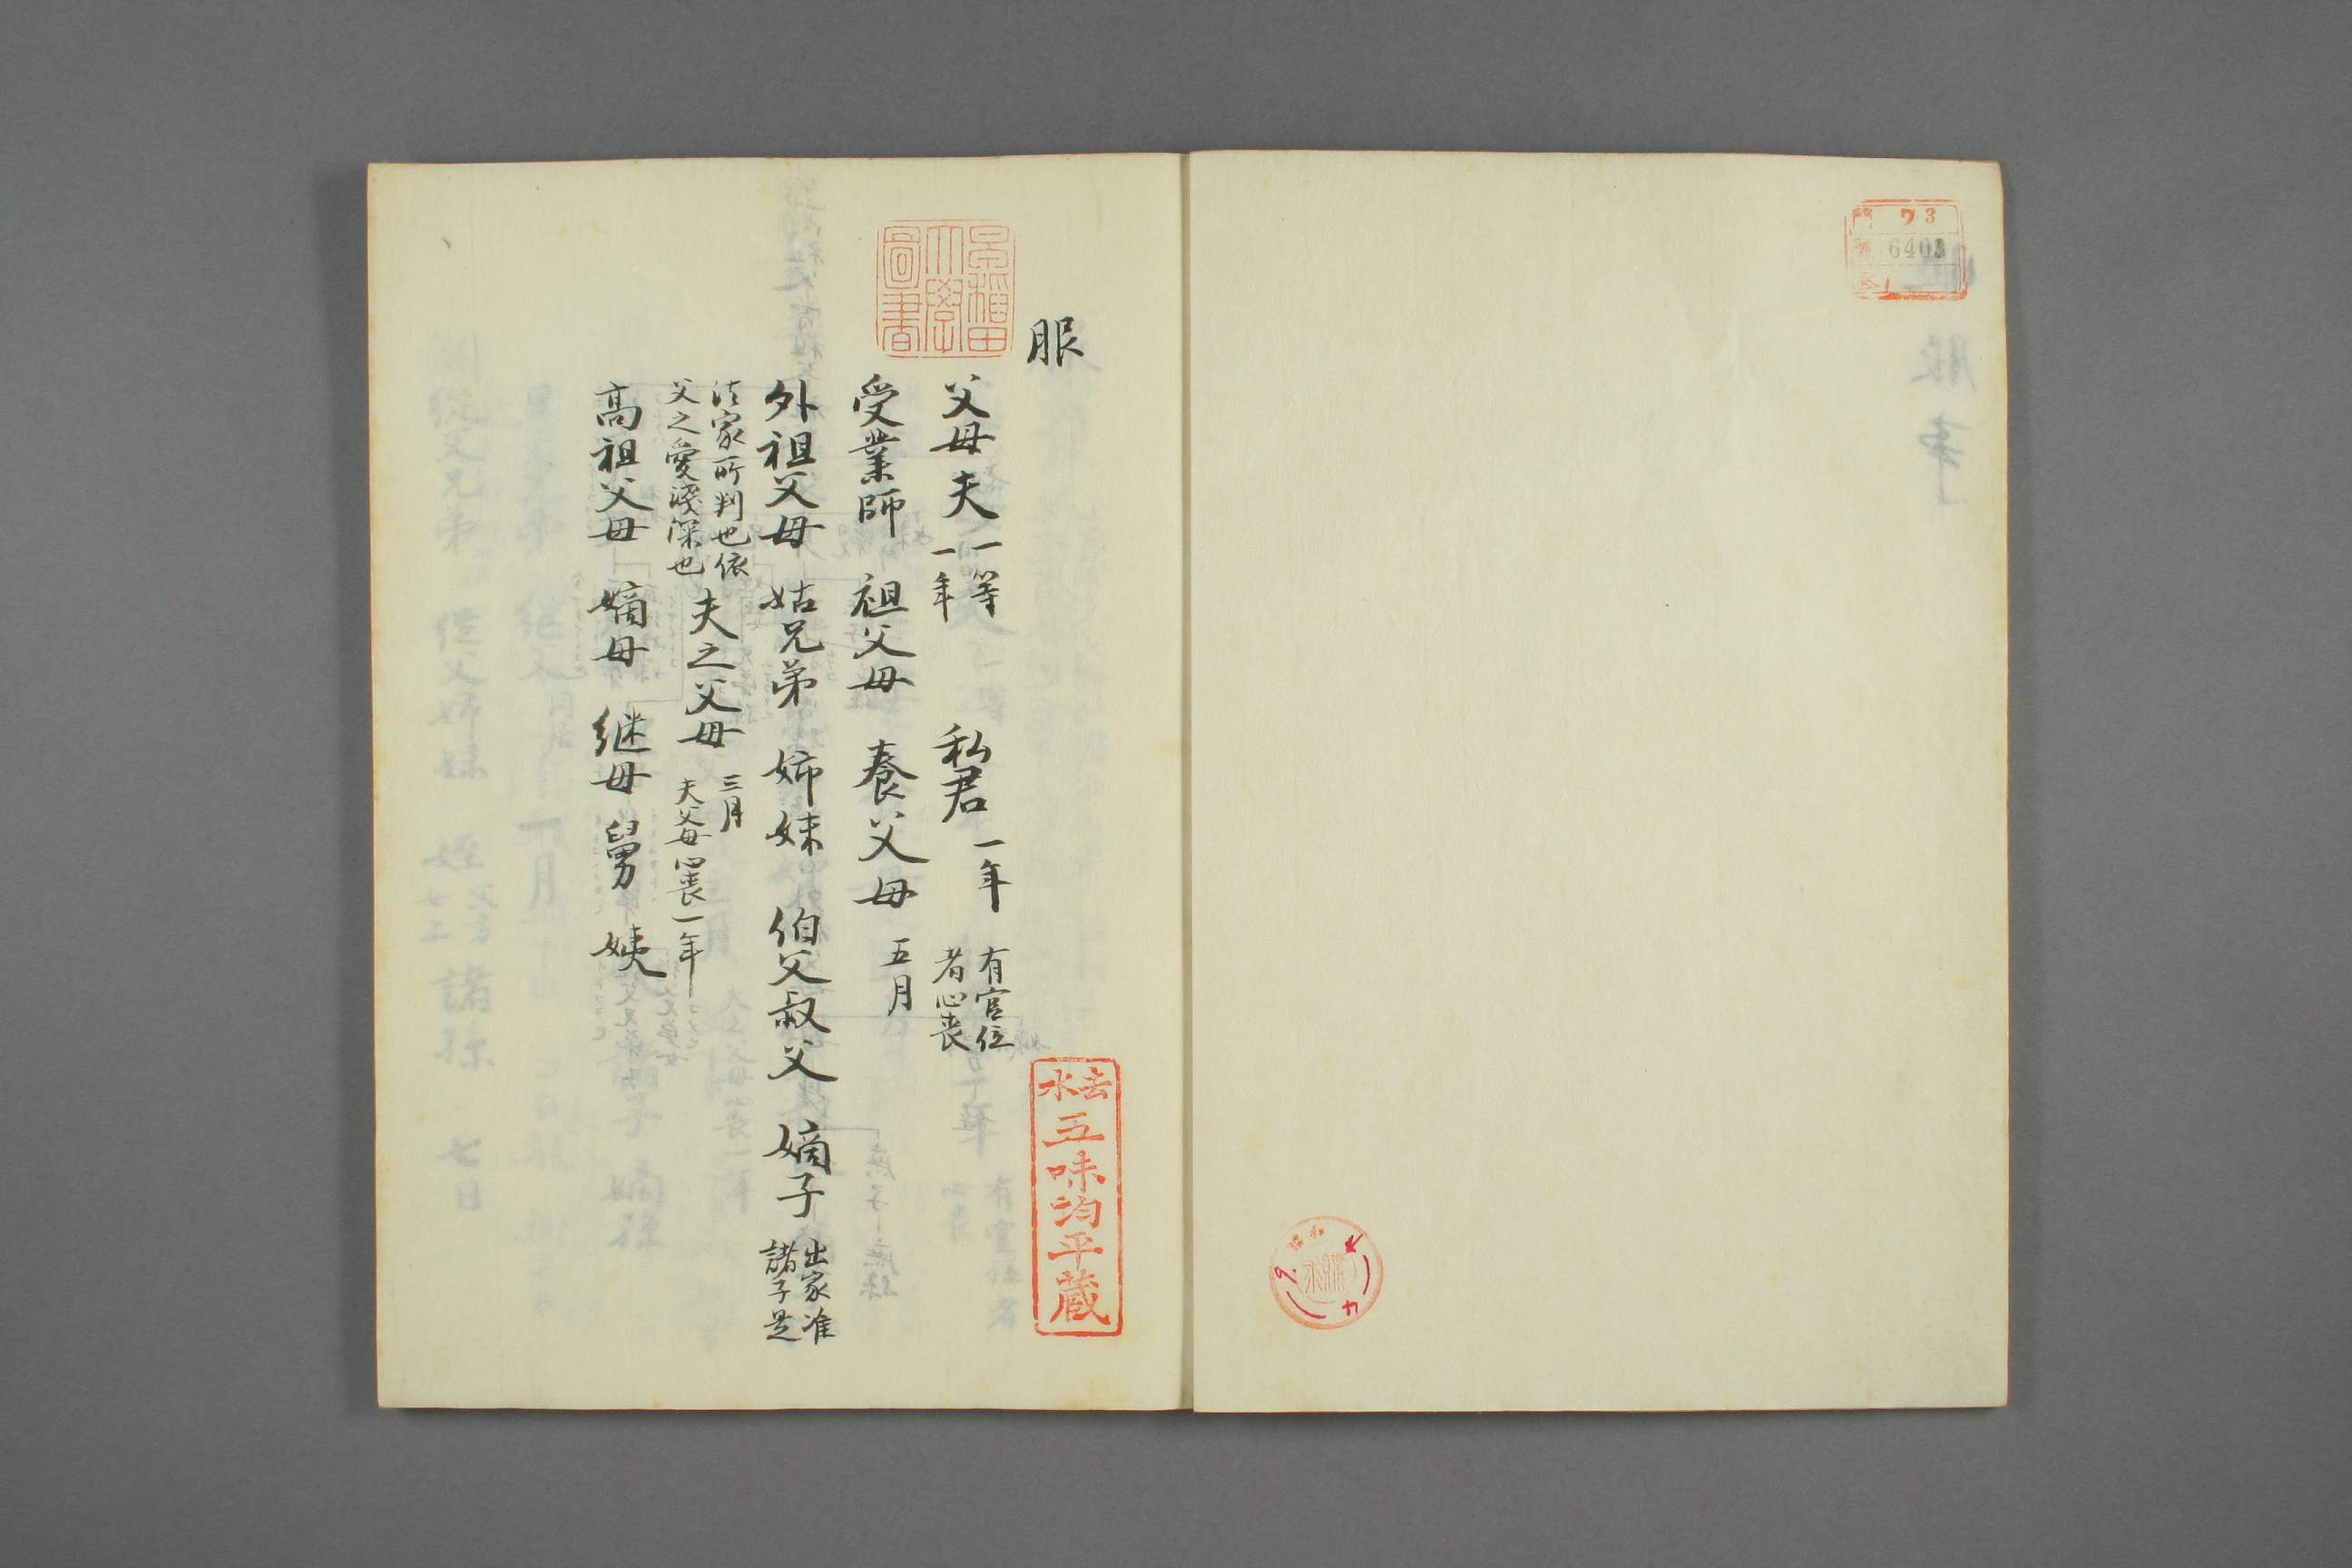 ワ3
6403
1
服
早稲田大學圖書
父母夫 一等 一年 私君 一年 有官位 者心喪
受業師 祖父母 養父母 五月
外祖父母 姑兄弟 姉妹 伯父叔父 嫡子 出家准 諸子是
法家所判也依 父之愛淺深也 夫之父母 三月 夫父母心喪一年
高祖父母 嫡母 継母 舅 姨
五味均平蔵